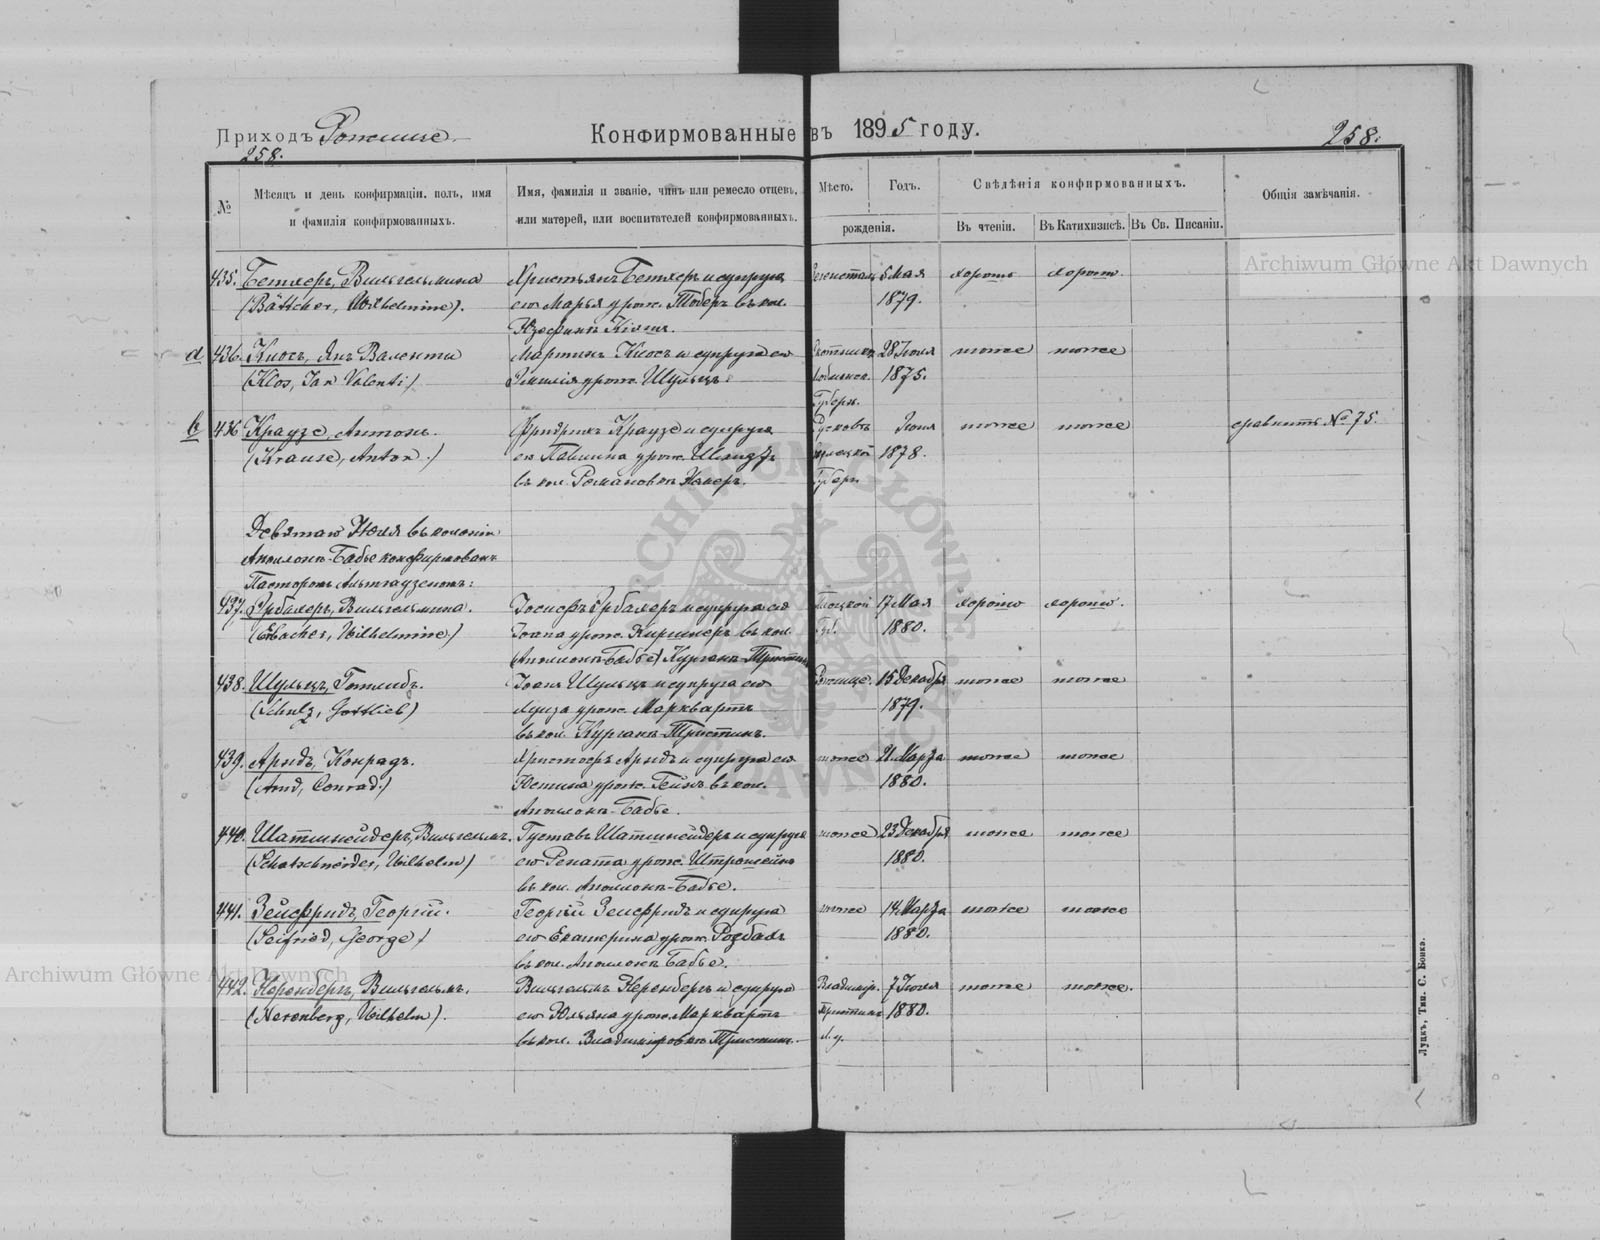 Приходъ Рожище
Конфирмованные въ 1895 году.
258.
258.
№
Мѣсяцъ и день конфирмаціи, полъ, имя
и фамилія конфирмованныхъ.
Имя, фамилія и званіе, чинъ или ремесло отцевъ,
или матерей, или воспитателей конфирмованныхъ.
Мѣсто.
Годъ.
рожденія.
Свѣдѣнія конфирмованныхъ.
Въ чтеніи.
Въ Катихизисѣ.
Въ Св. Писаніи.
Общія замѣчанія.
435. Бетхеръ, Вильгельмина
(Bättcher, Wilhelmine).
Христьянъ Бетхеръ и супруга
его Марья урож. Тоберъ въ кол.
Юзефинъ
5 Мая
1879.
хорошо
хорошо
a 436. Клосъ, Янъ Валенты
(Klos, Jan Valenti)
Мартинъ Клосъ и супруга его
Эмилія урож. Шульцъ.
Губерн.
28 Іюля
1875.
тоже
тоже
b 436 Краузе, Антонъ.
(Krause, Anton.)
Фридрихъ Краузе и супруга
его Павлина урож.
въ кол. Романовка
Губерн
Іюня
1878.
тоже
тоже
сравнить № 75.
Девятаго Іюля въ колоніи
Аполлонъ-Бабье конфирмованы
Пасторомъ Альтгаузеномъ:
437. Эрбахеръ, Вильгельмина.
(Erbacher, Wilhelmine)
Іосифъ Эрбахеръ и супруга его
Іоана урож. Киршнеръ въ кол.
(Аполлонъ-Бабье) Курганъ-Тристинъ
Плоцкой
Губ.
17 Мая
1880.
хорошо
хорошо.
438. Шульцъ, Готлибъ.
(Schulz, Gottlieb)
Іоанъ Шульцъ и супруга его
Луиза урож. Марквартъ
въ кол. Курганъ-Тристинъ.
Рожище.
15 Декабря
1879.
тоже
тоже
439. Арндъ, Конрадъ.
(Arnd, Conrad.)
Христофъ Арндъ и супруга его
Юстина урож. Гейнъ въ кол.
Аполлонъ-Бабье.
тоже
21 Марта
1880.
тоже
тоже
440. Шатшнейдеръ, Вильгельмъ.
(Schatschneider, Wilhelm)
Густавъ Шатшнейдеръ и супруга
его Рената урож. Штрошейнъ
въ кол. Аполлонъ-Бабье.
тоже
23 Декабря
1880.
тоже
тоже
441. Зейфридъ, Георгій.
(Seifried, George)
Георгій Зейфридъ и супруга
его Екатерина урож. Розбахъ
въ кол. Аполлонъ Бабье.
тоже
14 Марта
1880.
тоже
тоже
442. Керенбергъ, Вильгельмъ.
(Kerenberg, Wilhelm).
Вильгельмъ Керенбергъ и супруга
его Юльяна урож. Марквартъ
въ кол. Владимировка Тристинъ.
Владимир.
Тристинъ
Л. у.
7 Іюля
1880.
тоже
тоже.
Луцкъ, Тип. С. Бонкэ.
Archiwum Główne Akt Dawnych
Archiwum Główne Akt Dawnych
ARCHIWUM GŁÓWNE AKT DAWNYCH